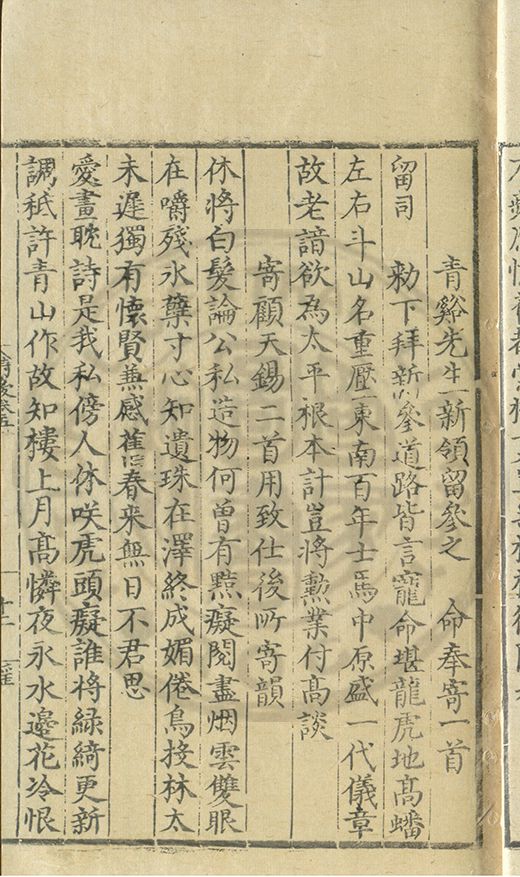 青谿先生新領留參之　命奉寄一首
留司　勑下拜新參道路皆言寵命堪龍虎地髙蟠
左右斗山名重壓東南百年士馬中原盛一代儀章
故老諳欲為太平根本計豈將勲業付髙談
寄顧天錫二首用致仕後所寄韻
休將白髮論公私造物何曾有黠癡閱盡烟雲雙眼
在嚼殘氷蘗寸心知遺珠在澤終成媚倦鳥投林太
未遲獨有懷賢兼感舊春来無日不君思
愛畫耽詩是我私傍人休咲虎頭癡誰将緑綺更新
調祇許青山作故知樓上月髙憐夜永水邊花冷恨